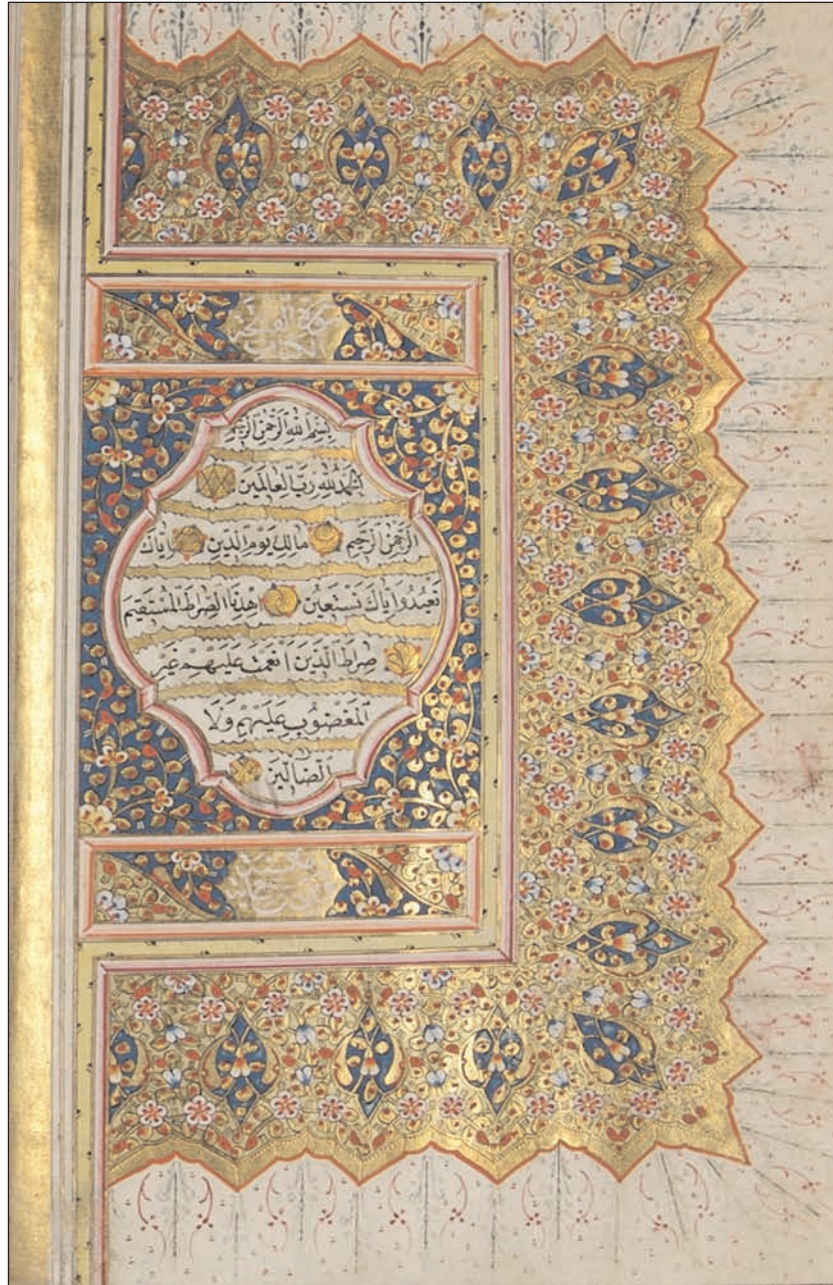 سورة الفاتحة
الكتاب
بِسْمِ اللهِ الرَّحْمٰنِ الرَّحِيْمِ
اَلْحَمْدُ لِلّٰهِ رَبِّ الْعَالَمِيْنَ
اَلرَّحْمٰنِ الرَّحِيْمِ مَالِكِ يَوْمِ الدِّيْنِ اِيَّاكَ
نَعْبُدُ وَاِيَّاكَ نَسْتَعِيْنُ اِهْدِنَا الصِّرَاطَ الْمُسْتَقِيْمَ
صِرَاطَ الَّذِيْنَ اَنْعَمْتَ عَلَيْهِمْ غَيْرِ
الْمَغْضُوْبِ عَلَيْهِمْ وَلَا
الضَّالِّيْنَ